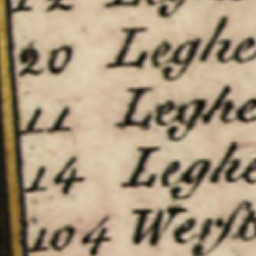 20 Leghe
11 Leghe
14 Leghe
104 Werſt